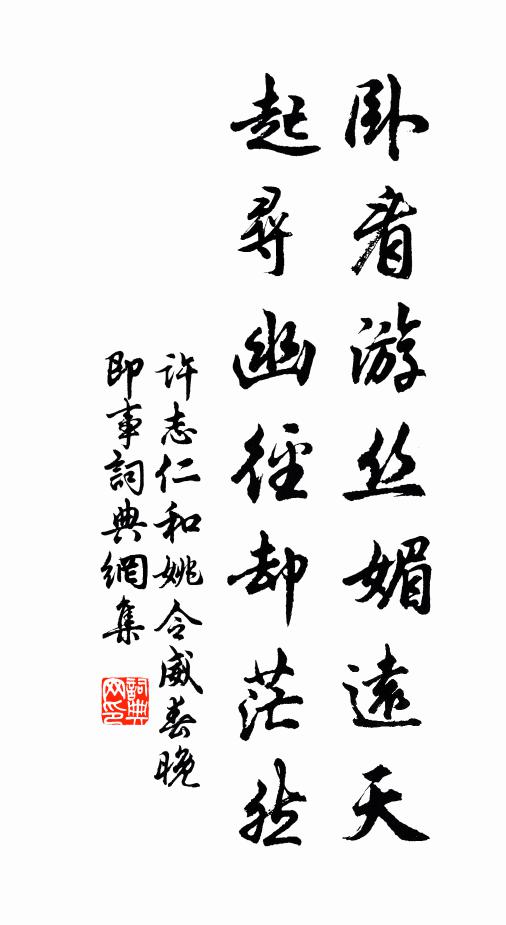 卧看游丝媚遠天
起尋幽徑却茫然
许志仁和姚令威春晚
即事詞典網集
詞典网印